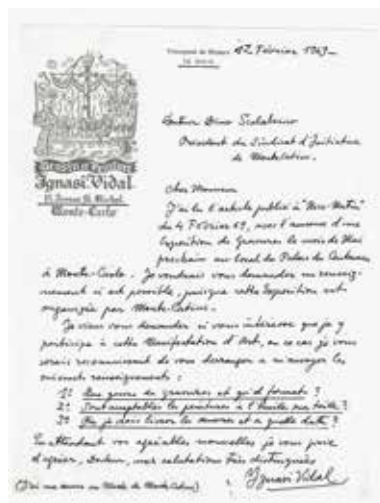 Principauté de Monaco 12 Février 1969
Dessin et Peinture
Ignasi Vidal
Monte-Carlo
Docteur Dino Scalabrino
Président du Sindicat d'Initiative
de Montecatini.
Cher Monsieur
J'ai lu l'article publié à "Nice-Matin"
du 4 Février 69, avec l'annonce d'une
Exposition de Gravures le mois de Mai
prochain au local du Palais du
à Monte-Carlo. Je voudrais vous demander un renseig-
nement si est possible, puisque cette Exposition est
organisée par Monte-Catini.
Je viens vous demander si vous intéresse que je y
participe à cette Manifestation d'Art, en ce cas je vous
serais reconnaissant de vous déranger à m'envoyer les
suivants renseignements :
1º Que genre de gravures et qu'el formats ?
2º Sont acceptables les peintures à l'huile sur toile ?
3º Où je dois livrer les œuvres et a quelle date ?
En attendant vos agréables nouvelles je vous prie
d'agréer, Docteur, mes salutations très distinguées
Ignasi Vidal
(J'ai une œuvre au Musée de Monte Catini)